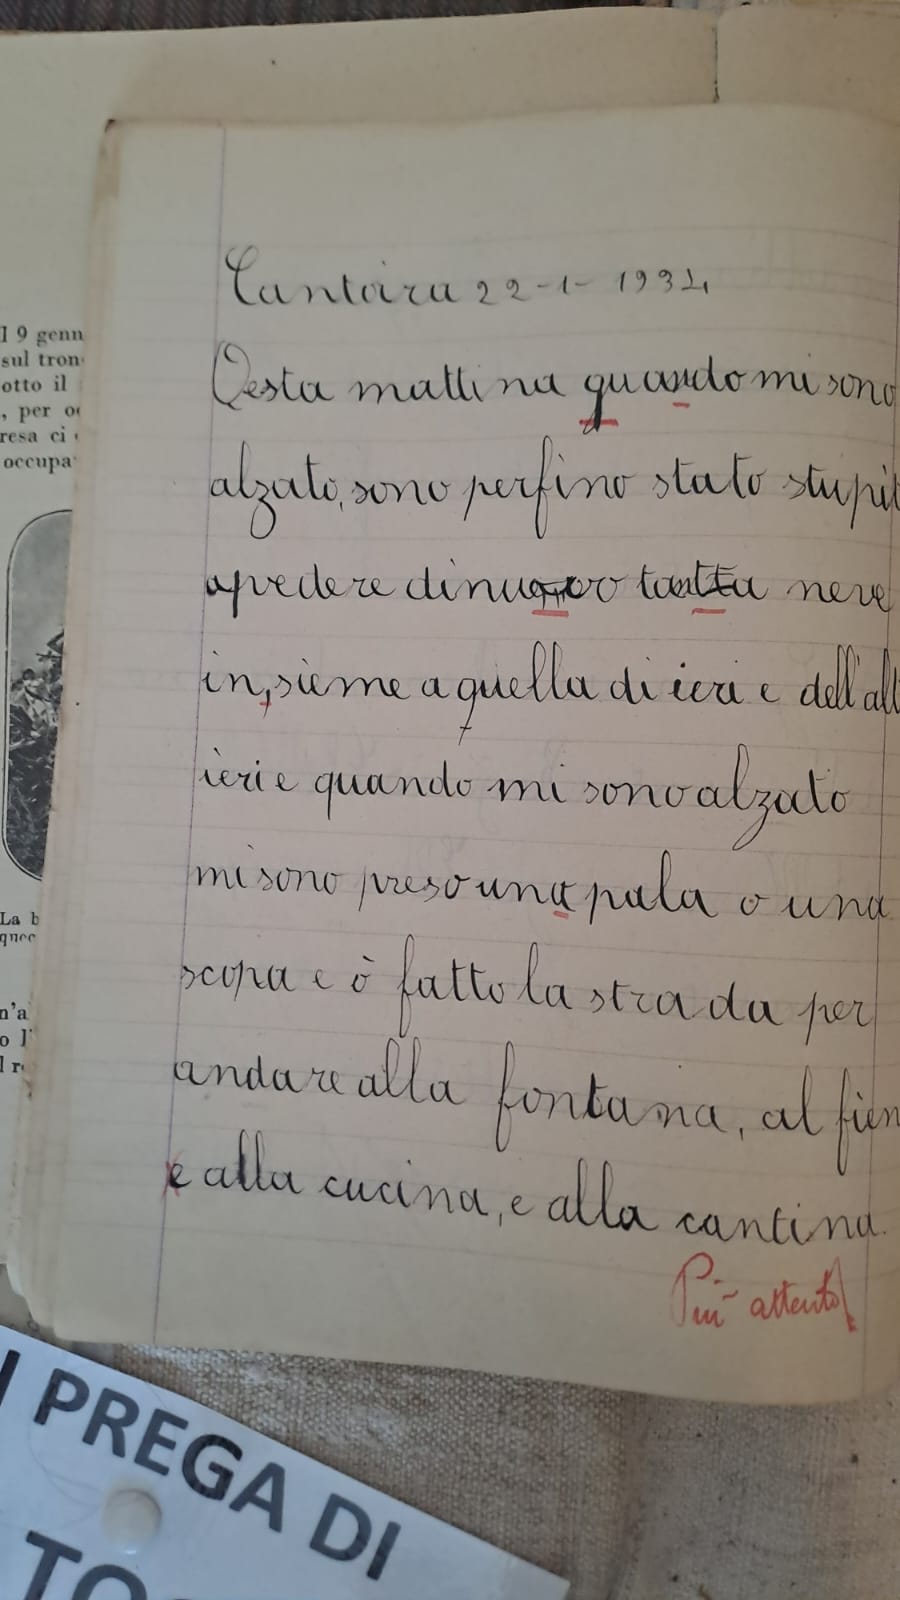 I 9 genn
sul tron
otto il
, per o
resa ci
occupa
La b
quec
n'a
o l'
l r
Cantoira 22-1-1934
Qesta mattina quando mi sono
alzato, sono perfino stato stupit
a vedere di nuovo tanta neve
insieme a quella di ieri e dell'alt
ieri e quando mi sono alzato
mi sono preso una pala o una
scopa e ò fatto la strada per
andare alla fontana, al fien
e alla cucina, e alla cantina.
Più attento!
PREGA DI
TO